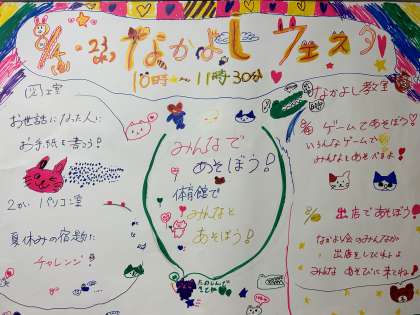 なかよしフェスタ
10時〜11時30分
お世話になった人に
お手紙を書こう!
2かい パソコン室
夏休みの宿題に
チャレンジ!
みんなで
あそぼう!
体育館で
みんなと
あそぼう!
なかよし教室
ゲームであそぼう
いろんなゲームで
みんなとあそべるよ!
出店であそぼう
なかよし会のみんなが
出店をしているよ
みんな あそびに来てね!